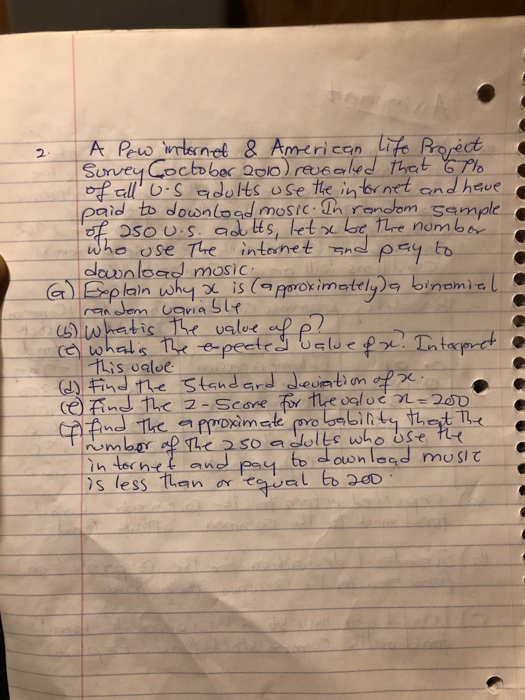 2. A Pew internet & American life Project
Survey (october 2010) revealed that 67%
of all U.S adults use the internet and have
paid to download music. In random sample
of 250 U.S. adults, let x be the number
who use The internet and pay to
download music.
(a) Explain why x is (approximately) a binomial
random variable
(b) what is the value of p?
(c) what is the expected value of x? Interpret
this value
(d) Find the standard deviation of x.
(e) Find the z-score for the value x = 200
(f) find the approximate probability that the
number of the 250 adults who use the
internet and pay to download music
is less than or equal to 200.